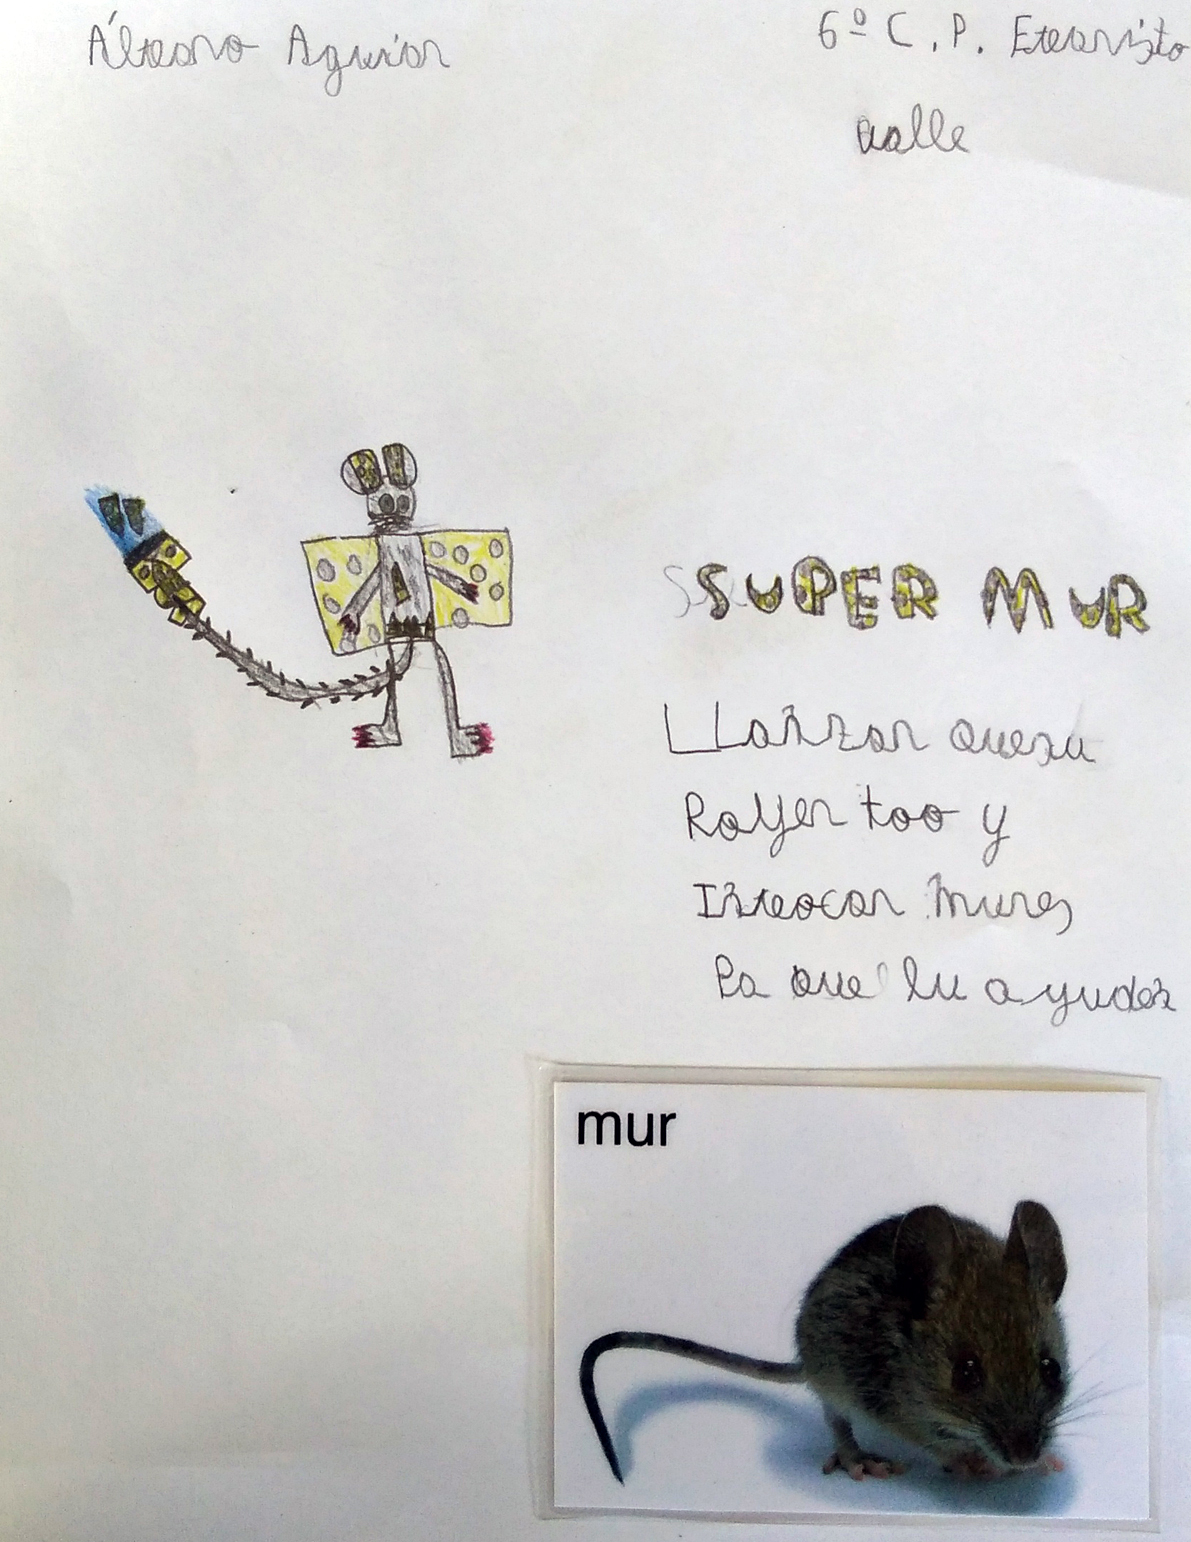 Álvaro Aguiar
6º C.P. Evaristo
Valle
SUPER MUR
LLanzar quesu
Royer too y
Invocar mures
Pa que lu ayuden
mur